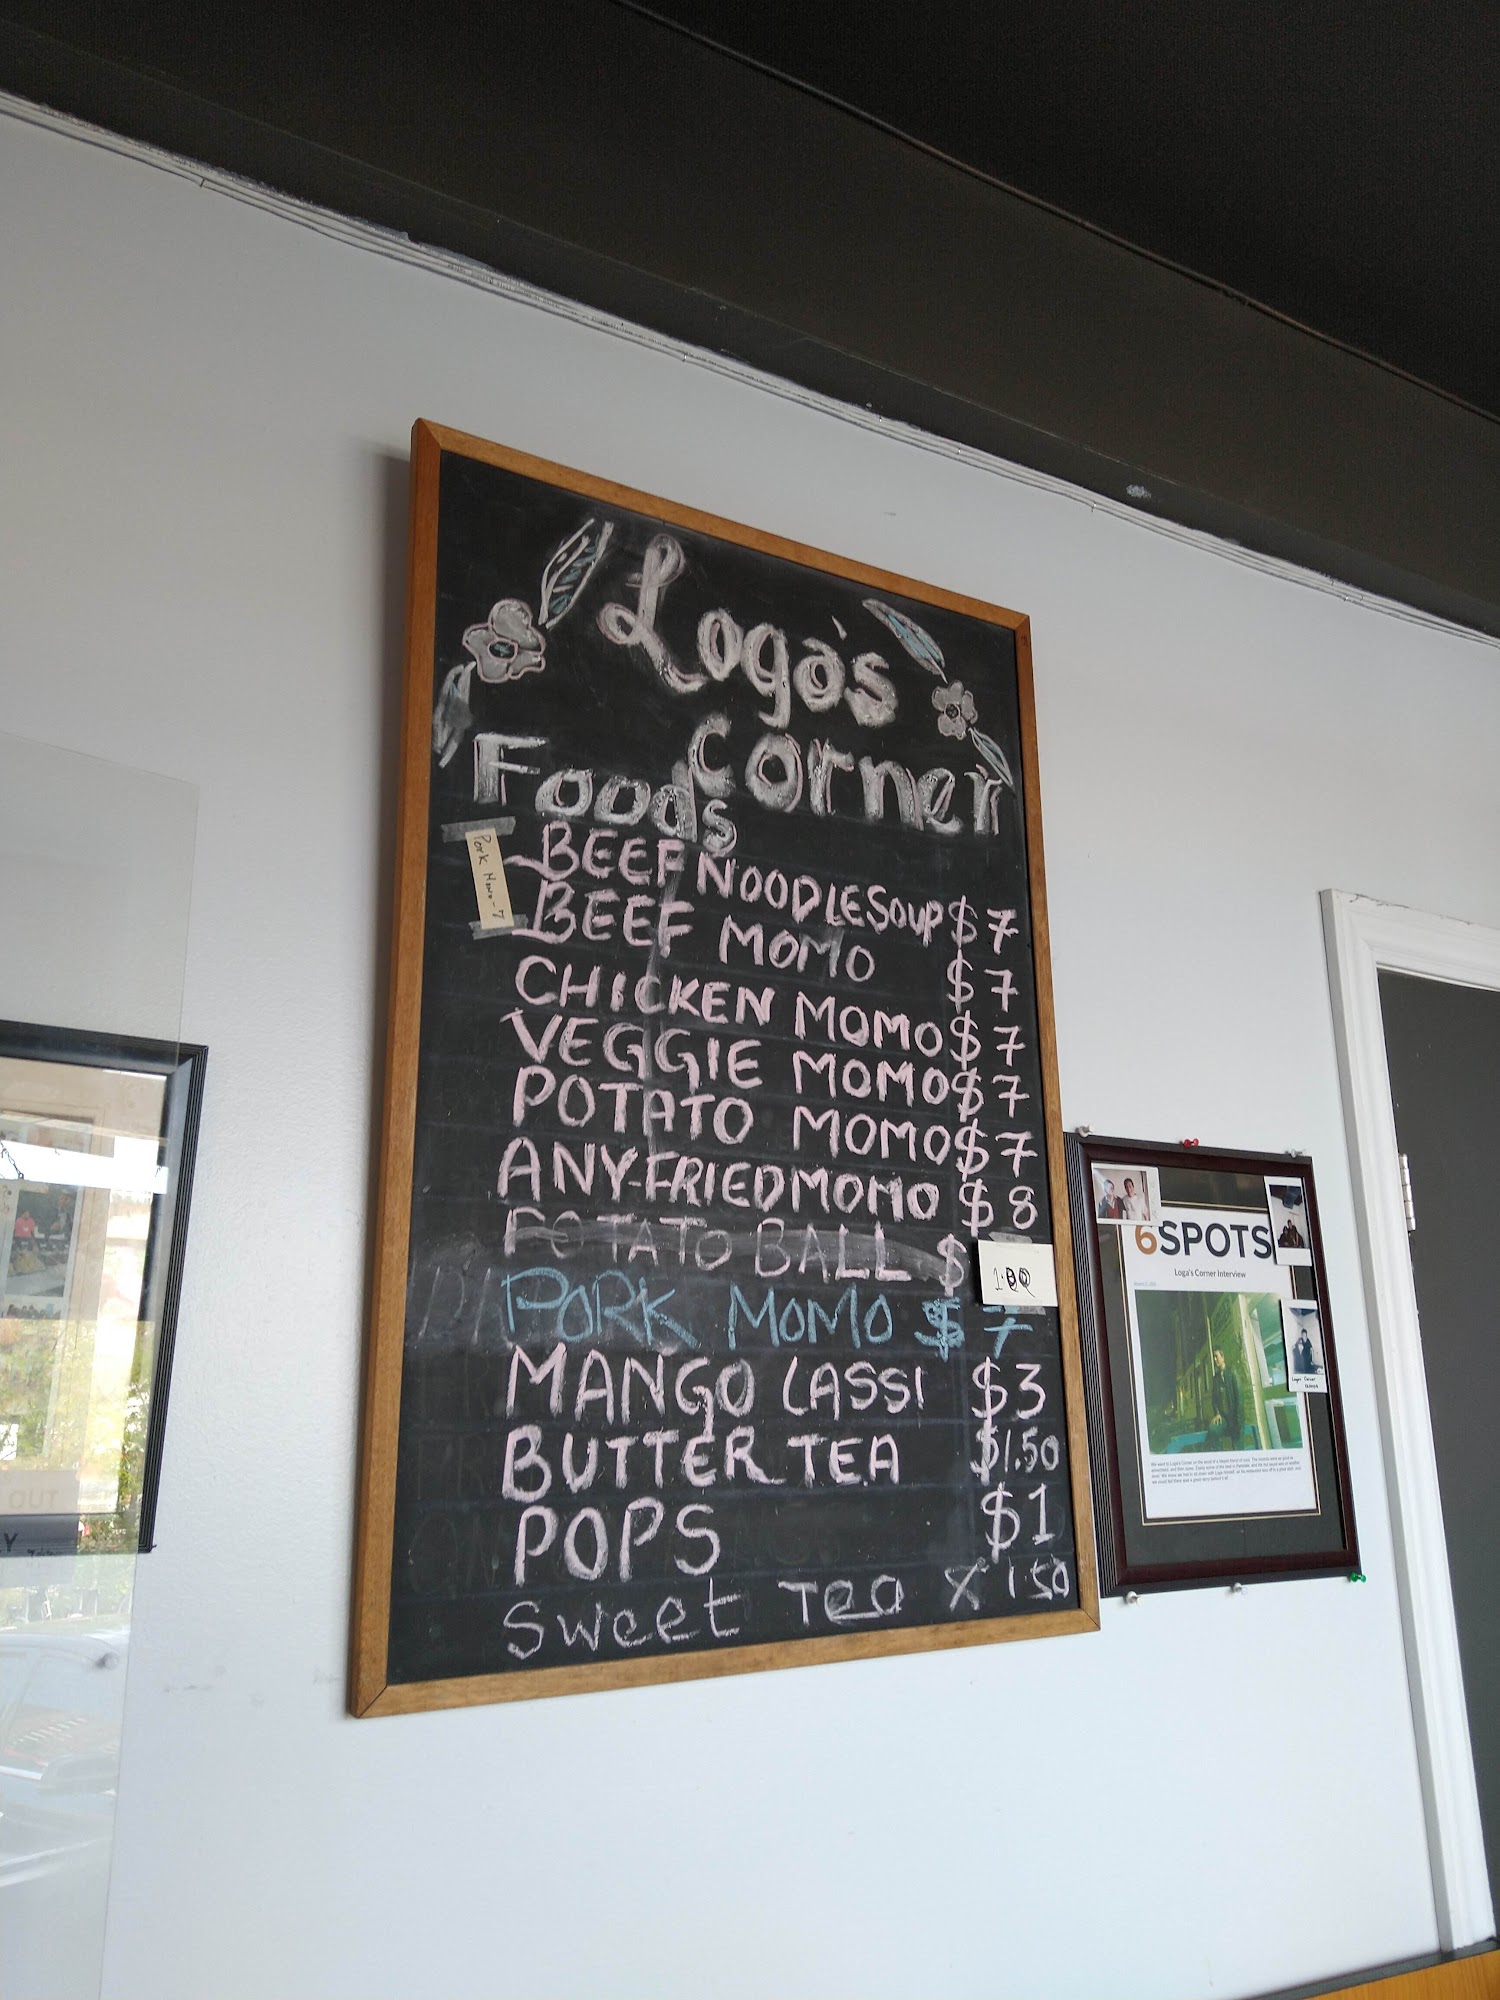 Loga's
Corner
Foods
Pork Momo - 7
BEEF NOODLE SOUP $ 7
BEEF MOMO $ 7
CHICKEN MOMO $ 7
VEGGIE MOMO $ 7
POTATO MOMO $ 7
ANY-FRIED MOMO $ 8
POTATO BALL $
PORK MOMO $ 7
MANGO LASSI $3
BUTTER TEA $1.50
POPS $1
Sweet Tea 1.50
6SPOTS
Loga's Corner Interview